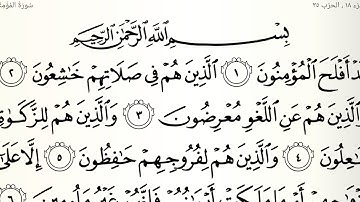 سُورَةُ المُؤْمِنُون
الحزب ٣٥
بِسْمِ ٱللَّهِ ٱلرَّحْمَٰنِ ٱلرَّحِيمِ
أَفْلَحَ ٱلْمُؤْمِنُونَ ١ ٱلَّذِينَ هُمْ فِى صَلَاتِهِمْ خَٰشِعُونَ ٢
وَٱلَّذِينَ هُمْ عَنِ ٱللَّغْوِ مُعْرِضُونَ ٣ وَٱلَّذِينَ هُمْ لِلزَّكَوٰةِ
فَٰعِلُونَ ٤ وَٱلَّذِينَ هُمْ لِفُرُوجِهِمْ حَٰفِظُونَ ٥ إِلَّا عَلَىٰٓ
أَوْ مَا مَلَكَتْ أَيْمَٰنُهُمْ فَإِنَّهُمْ غَيْرُ مَلُومِينَ ٦